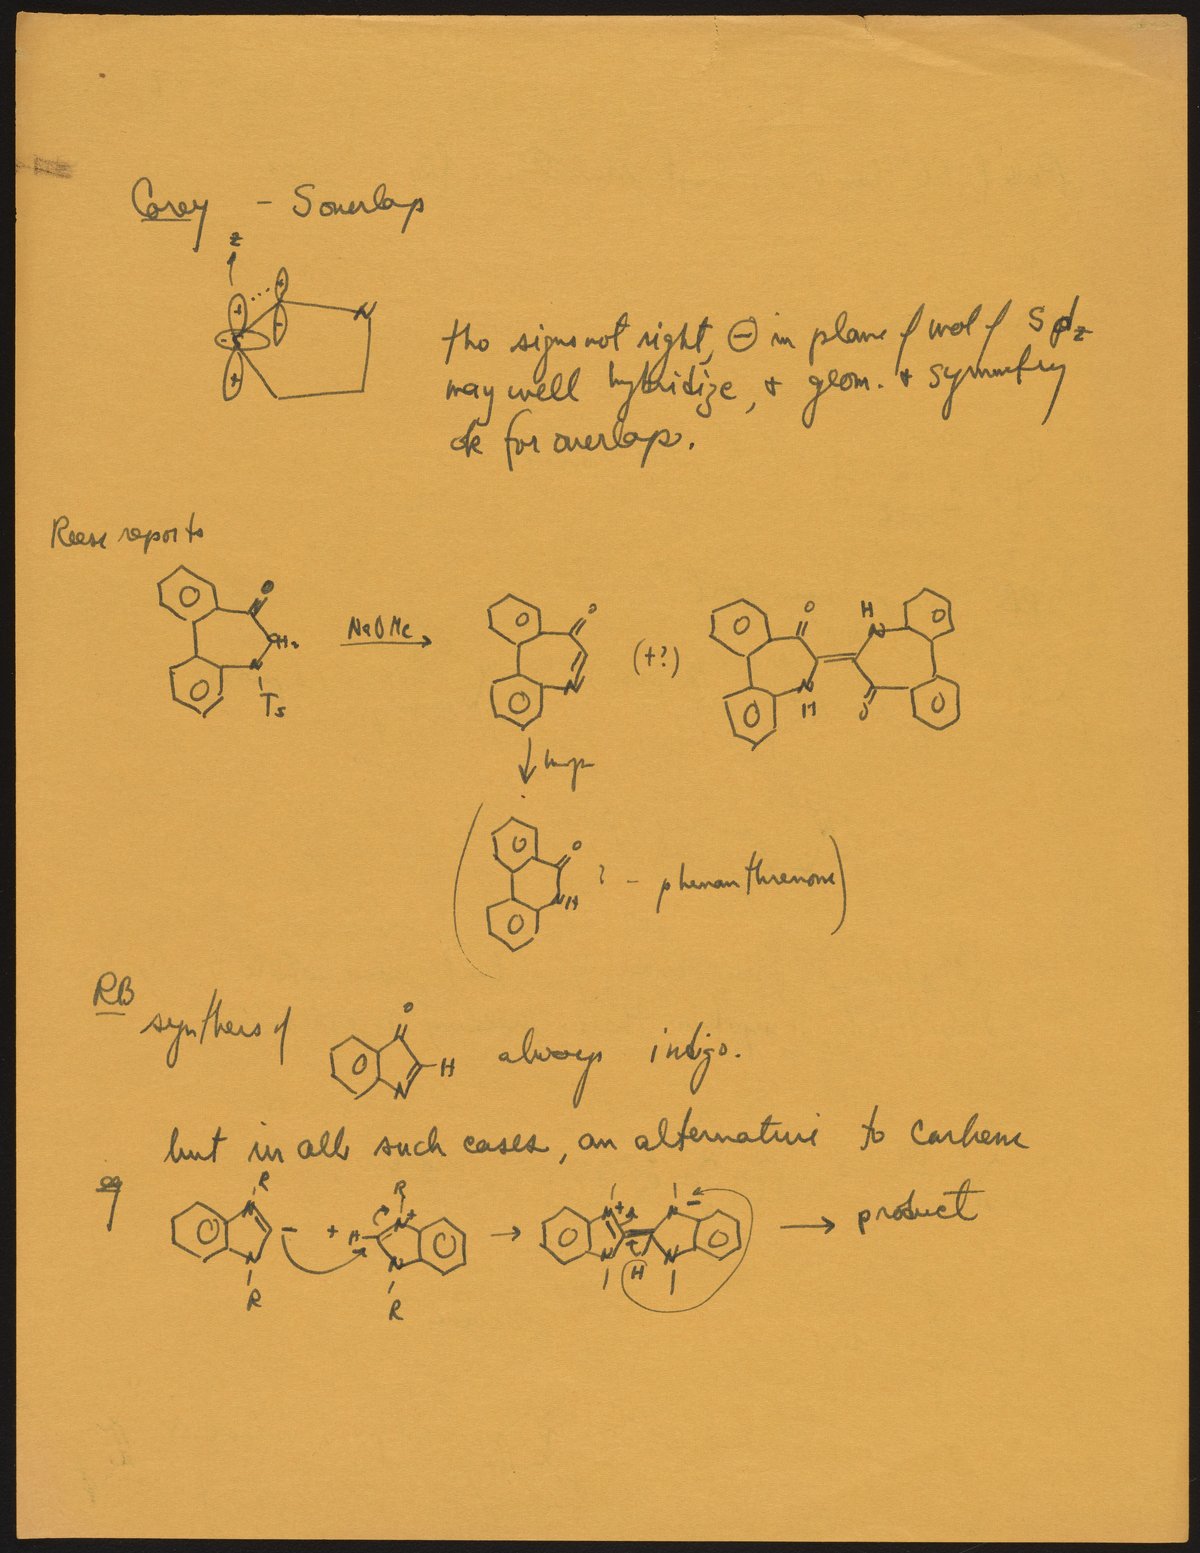 Corey - S overlap
z
+ + - - S + N
tho signs not right, ⊖ in plane of mol of S dz
may well hybridize, & geom. & symmetry
ok for overlap.
Reese reports
O CH2 N Ts
NaOMe
O N
(+?)
O N H H N O
O NH ? - phenanthrenone
RB
synthesis of O N H always indigo.
but in all such cases, an alternative to carbene
eg
N R N R - + H R N + N R N + N H N - N product